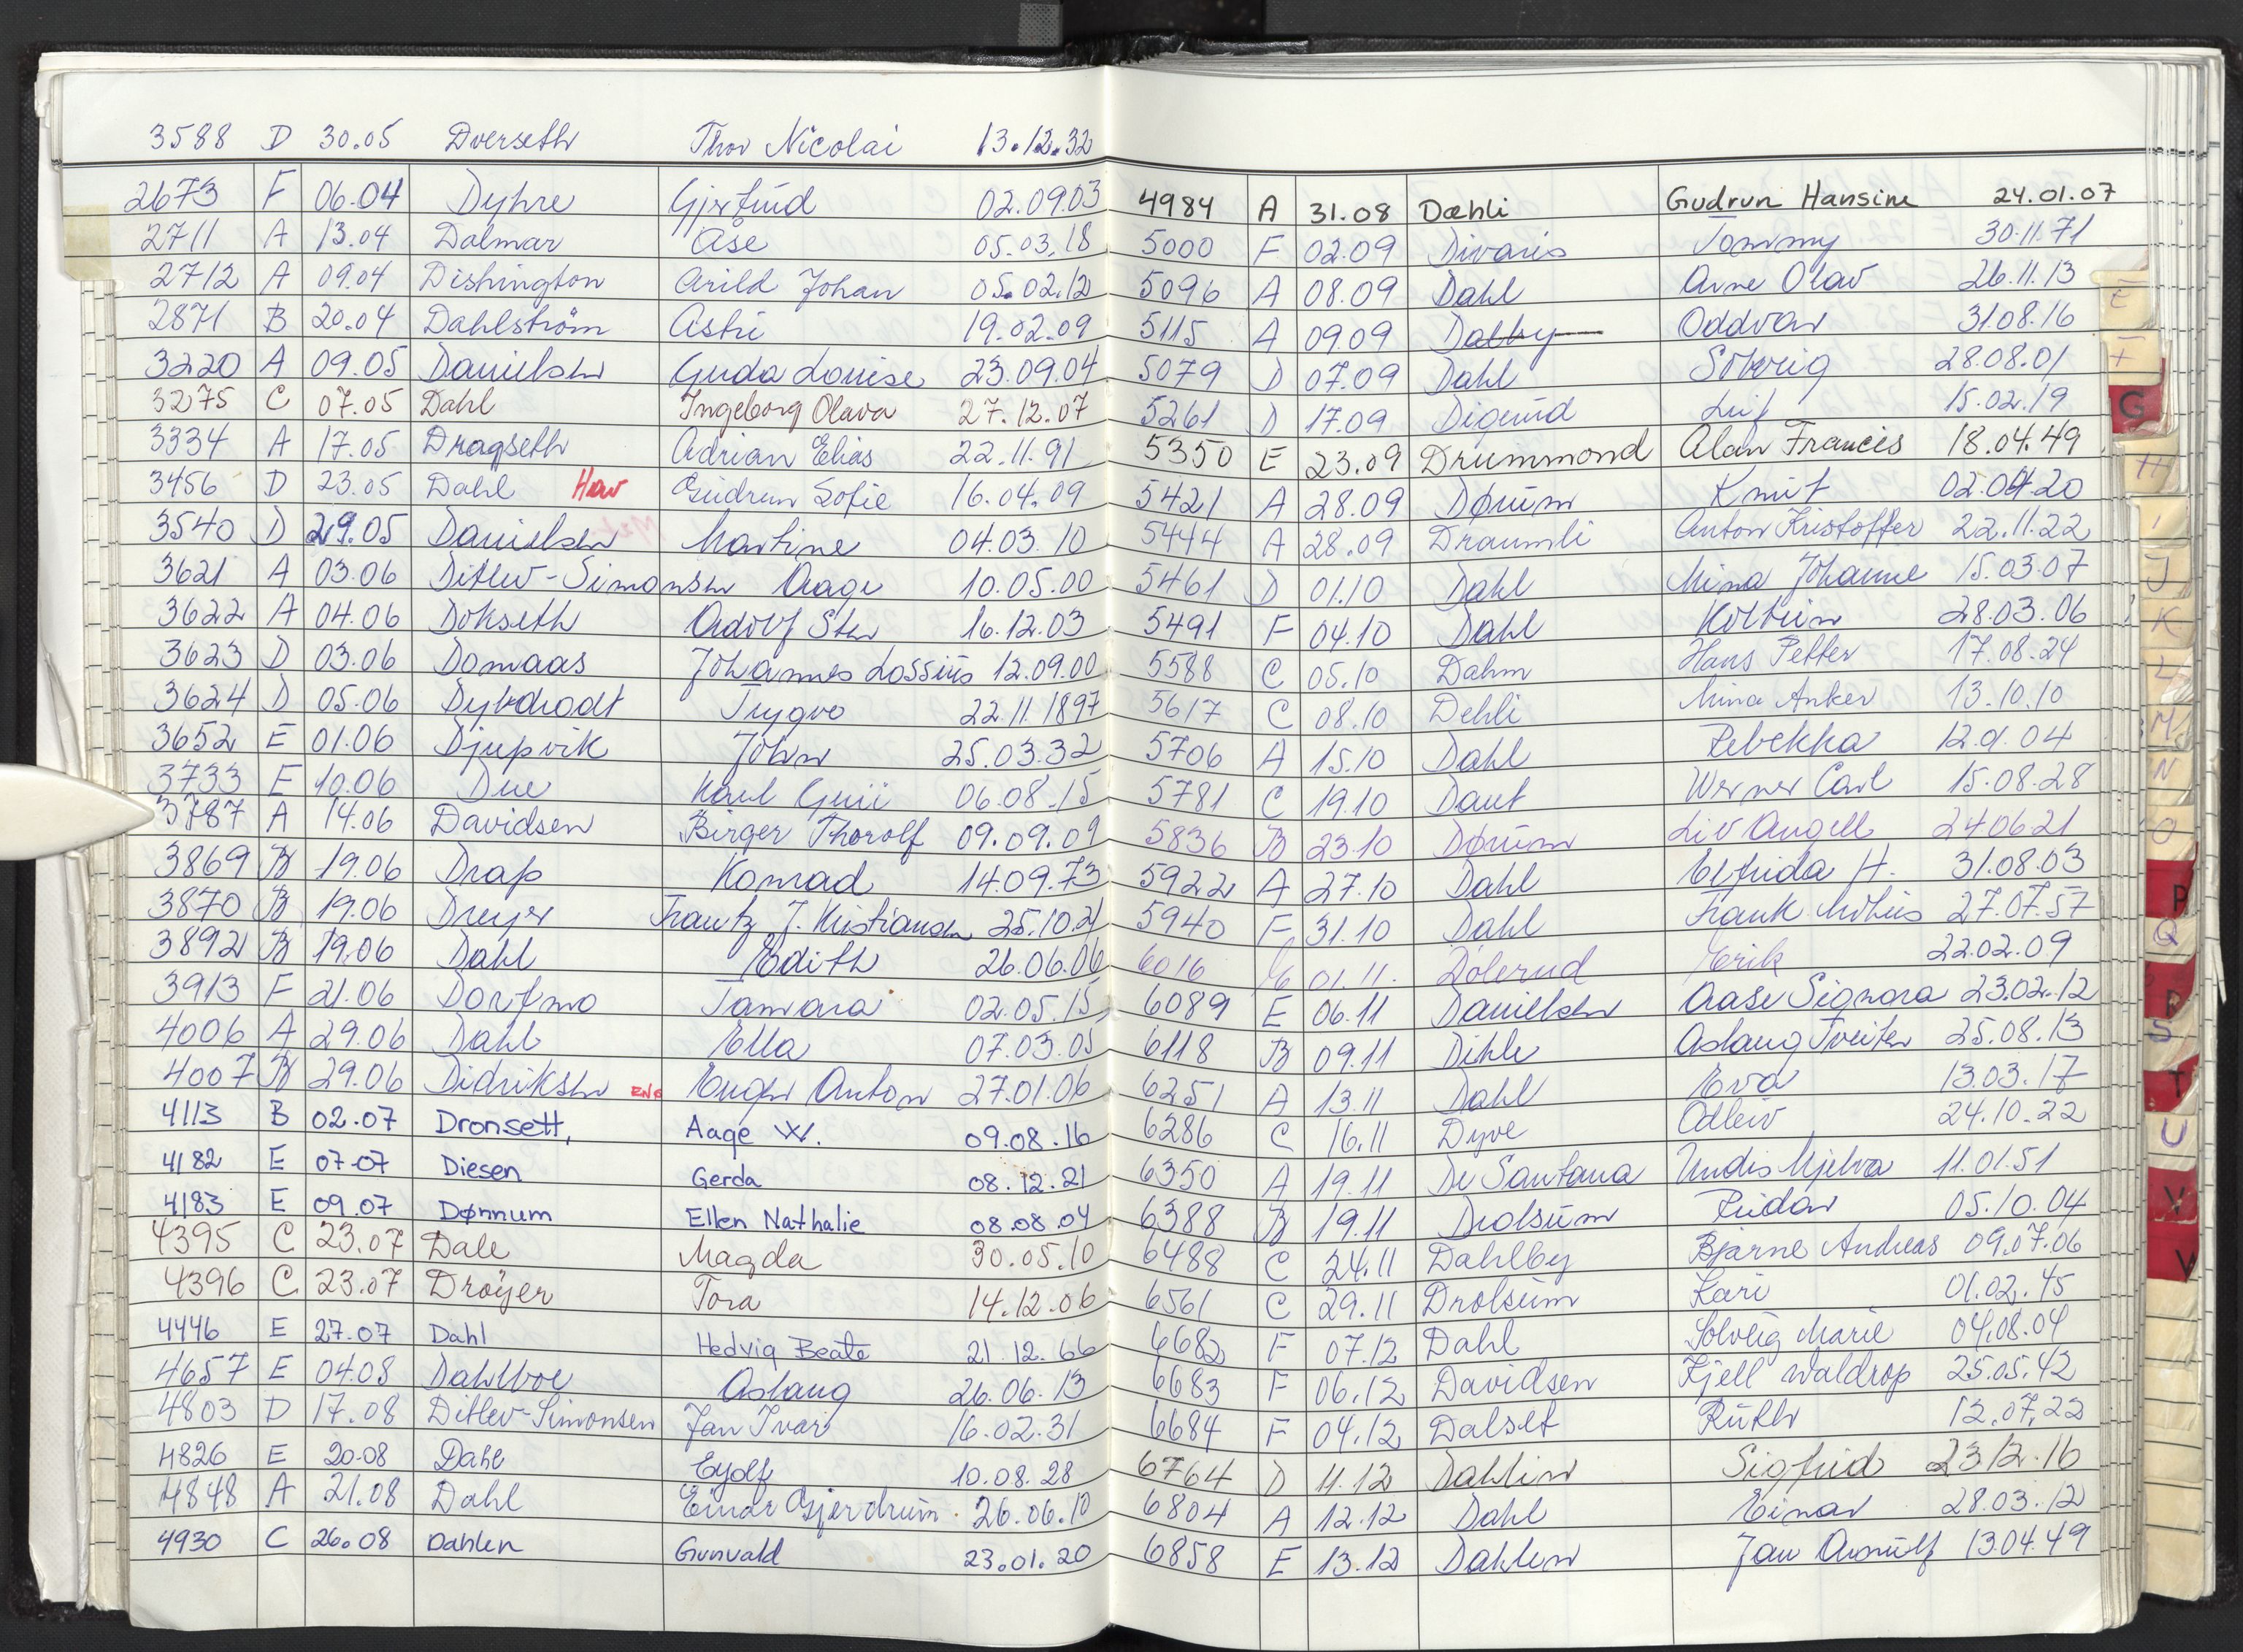 3588 D 30.05 Dverseth Thor Nicolai 13.12.32
2673 F 06.04 Dyhre Gjertrud 02.09.03
2711 A 13.04 Dalmar Åse 05.03.18
2712 A 09.04 Dishington Arild Johan 05.02.12
2871 B 20.04 Dahlström Astri 19.02.09
3220 A 09.05 Danielsen Gerda Louise 23.09.04
3275 C 07.05 Dahl Ingeborg Olava 27.12.07
3334 A 17.05 Dragseth Adrian Elias 22.11.91
3456 D 23.05 Dahl Gudrun Sofie 16.04.09
3540 D 29.05 Danielsen Martine 04.03.10
3621 A 03.06 Ditlev-Simonsen Aage 10.05.00
3622 A 04.06 Dokseth Adolf Sten 16.12.03
3623 D 03.06 Domaas Johannes Lossius 12.09.00
3624 D 05.06 Dybdrodt Trygve 22.11.1897
3652 E 01.06 Djupvik John 25.03.32
3733 E 10.06 Due Karl 06.08.15
3787 A 14.06 Davidsen Birger Thorolf 09.09.09
3869 B 19.06 Drap Konrad 14.09.73
3870 B 19.06 Dreyer Frantz J. Kristiansen 25.10.21
3892 B 19.06 Dahl Edith 26.06.06
3913 F 21.06 Dorfmo Tamara 02.05.15
4006 A 29.06 Dahl Ella 07.03.05
4007 B 29.06 Didriksen Anton 27.01.06
4113 B 02.07 Dronsett, Aage W. 09.08.16
4182 E 07.07 Diesen Gerda 08.12.21
4183 E 09.07 Dønnum Ellen Nathalie 08.08.04
4395 C 23.07 Dale Magda 30.05.10
4396 C 23.07 Dröyer Tora 14.12.06
4446 E 27.07 Dahl Hedvig Beate 21.12.66
4657 E 04.08 Dahlboe Aslaug 26.06.13
4803 D 17.08 Ditlev-Simonsen Jan Ivar 16.02.31
4826 E 20.08 Dahl Eyolf 10.08.28
4848 A 21.08 Dahl Einar Gjerdrum 26.06.10
4930 C 26.08 Dahlen Gunvald 23.01.20
4984 A 31.08 Dæhli Gudrun Hansine 24.01.07
5000 F 02.09 Divaris Tommy 30.11.71
5096 A 08.09 Dahl Arne Olav 26.11.13
5115 A 09.09 Dalby Oddvar 31.08.16
5079 D 07.09 Dahl Solveig 28.08.01
5261 D 17.09 Digerud Leif 15.02.19
5350 E 23.09 Drummond Alan Francis 18.04.49
5421 A 28.09 Dørum Knut 02.04.20
5444 A 28.09 Draumli Anton Kristoffer 22.11.22
5461 D 01.10 Dahl Mina Johanne 15.03.07
5491 F 04.10 Dahl Kolbein 28.03.06
5588 C 05.10 Dahm Hans Petter 17.08.24
5617 C 08.10 Dehli Mina Anker 13.10.10
5706 A 15.10 Dahl Rebekka 12.9.04
5781 C 19.10 Daut Werner Carl 15.08.28
5836 B 23.10 Dørum Liv Angell 24.06.21
5922 A 27.10 Dahl Elfrida H. 31.08.03
5940 F 31.10 Dahl Frank 27.07.57
6016 E 01.11. Dølerud Erik 22.02.09
6089 E 06.11 Danielsen Aase Signora 23.02.12
6118 B 09.11 Dihle Aslaug Tveiten 25.08.13
6251 A 13.11 Dahl Eva 13.03.17
6286 C 16.11 Dyve Odleiv 24.10.22
6350 A 19.11 De Santana Undis Mjelva 11.01.51
6388 B 19.11 Drolsum Reidar 05.10.04
6488 C 24.11 Dahlby Bjarne Andreas 09.07.06
6561 C 29.11 Drolsum Kari 01.02.45
6682 F 07.12 Dahl Solveig Marie 04.08.04
6683 F 06.12 Davidsen Kjell Waldrop 25.05.42
6684 F 04.12 Dalset Ruth 12.07.22
6764 D 11.12 Dahlin Sigfrid 23.12.16
6804 A 12.12 Dahl Einar 28.03.12
6858 E 13.12 Dahlen Jan Arnulf 13.04.49
E
F
G
H
I
J
K
L
M
N
O
P
Q
R
S
T
U
V